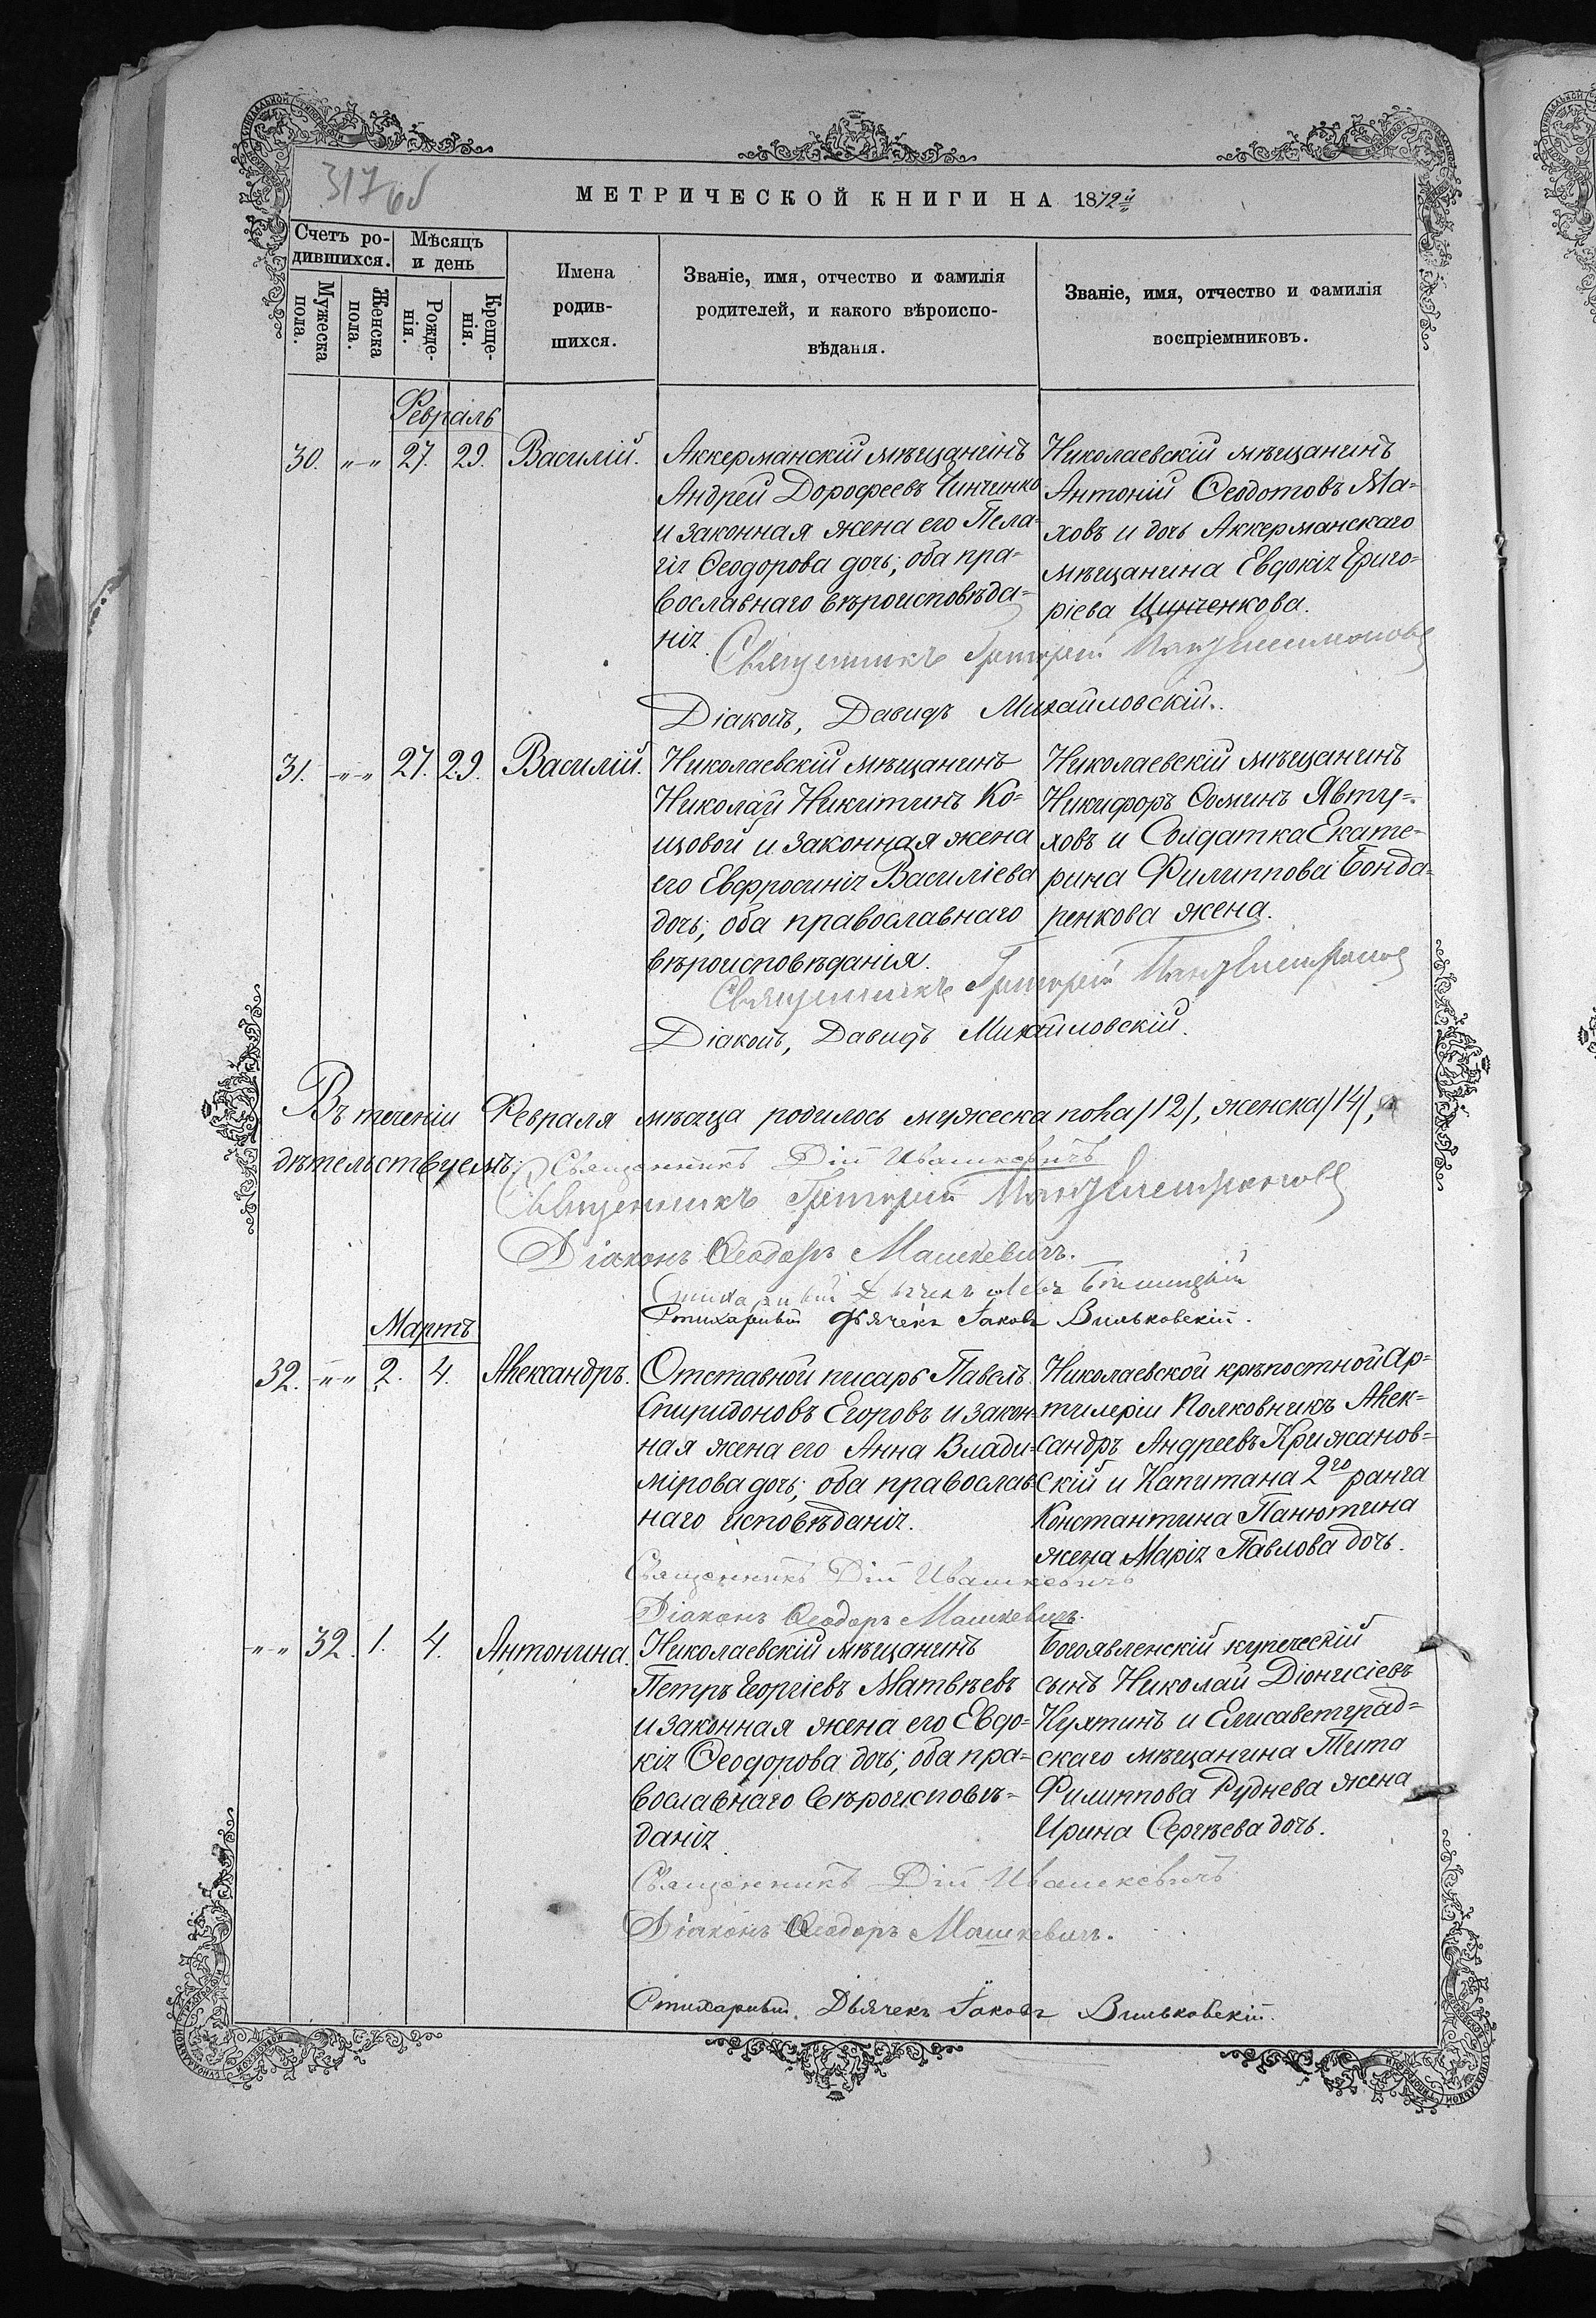 317 об
МЕТРИЧЕСКОЙ КНИГИ НА 1872й
Счетъ ро-
дившихся.
Мѣсяцъ
и день
Мужеска
пола.
Женска
пола.
Рожде-
нія.
Креще-
нія.
Имена
родив-
шихся.
Званіе, имя, отчество и фамилія
родителей, и какого вѣроиспо-
вѣданія.
Званіе, имя, отчество и фамилія
воспріемниковъ.
Февраль
30. „-„ 27. 29. Василій.
Аккерманскій мѣщанинъ
Андрей Дорофеевъ Чинченко
и законная жена его Пела-
гія Ѳеодорова дочь; оба пра-
вославнаго вѣроисповѣда-
нія.
Николаевскій мѣщанинъ
Антоній Ѳеодотовъ Ма-
ховъ и дочь Аккерманскаго
мѣщанина Евдокія Григо-
ріева Цинченкова.
Священникъ Григорій
Діаконъ, Давидъ Михайловскій.
31. „-„ 27. 29. Василій.
Николаевскій мѣщанинъ
Николай Никитинъ Ко-
шовой и законная жена
его Евфросинія Василіева
дочь; оба православнаго
вѣроисповѣданія.
Николаевскій мѣщанинъ
Никифоръ Ѳоминъ Явту-
ховъ и Солдатка Екате-
рина Филиппова Бонда-
ренкова жена.
Священникъ Григорій
Діаконъ, Давидъ Михайловскій.
Въ теченіи Февраля мѣсяца родилось мужеска пола /12/, женска /14/,
дѣтельствуемъ: Священникъ Дій Ивашкевичъ
Священникъ Григорій
Діаконъ Ѳеодоръ Машкевичъ.
Стихарный Дьячекъ
Стихарный Дьячекъ Іаковъ Вильковскій.
Мартъ
32. „-„ 2. 4. Александръ.
Отставной писарь Павелъ
Спиридоновъ Егоровъ и закон-
ная жена его Анна Влади-
мірова дочь; оба православ-
наго исповѣданія.
Николаевской крѣпостной Ар-
тилеріи Полковникъ Алек-
сандръ Андреевъ Крижанов-
скій и Капитана 2го ранга
Константина Панютина
жена Марія Павлова дочь.
Священникъ Дій Ивашкевичъ
Діаконъ Ѳеодоръ Машкевичъ.
„-„ 32. 1. 4. Антонина.
Николаевскій мѣщанинъ
Петръ Георгіевъ Матвѣевъ
и законная жена его Евдо-
кія Ѳеодорова дочь; оба пра-
вославнаго вѣроисповѣ-
данія.
Богоявленскій купеческій
сынъ Николай Діонисіевъ
Кухтинъ и Елисаветград-
скаго мѣщанина Тита
Филиппова Руднева жена
Ирина Сергѣева дочь.
Священникъ Дій Ивашкевичъ
Діаконъ Ѳеодоръ Машкевичъ.
Стихарный Дьячекъ Іаковъ Вильковскій.